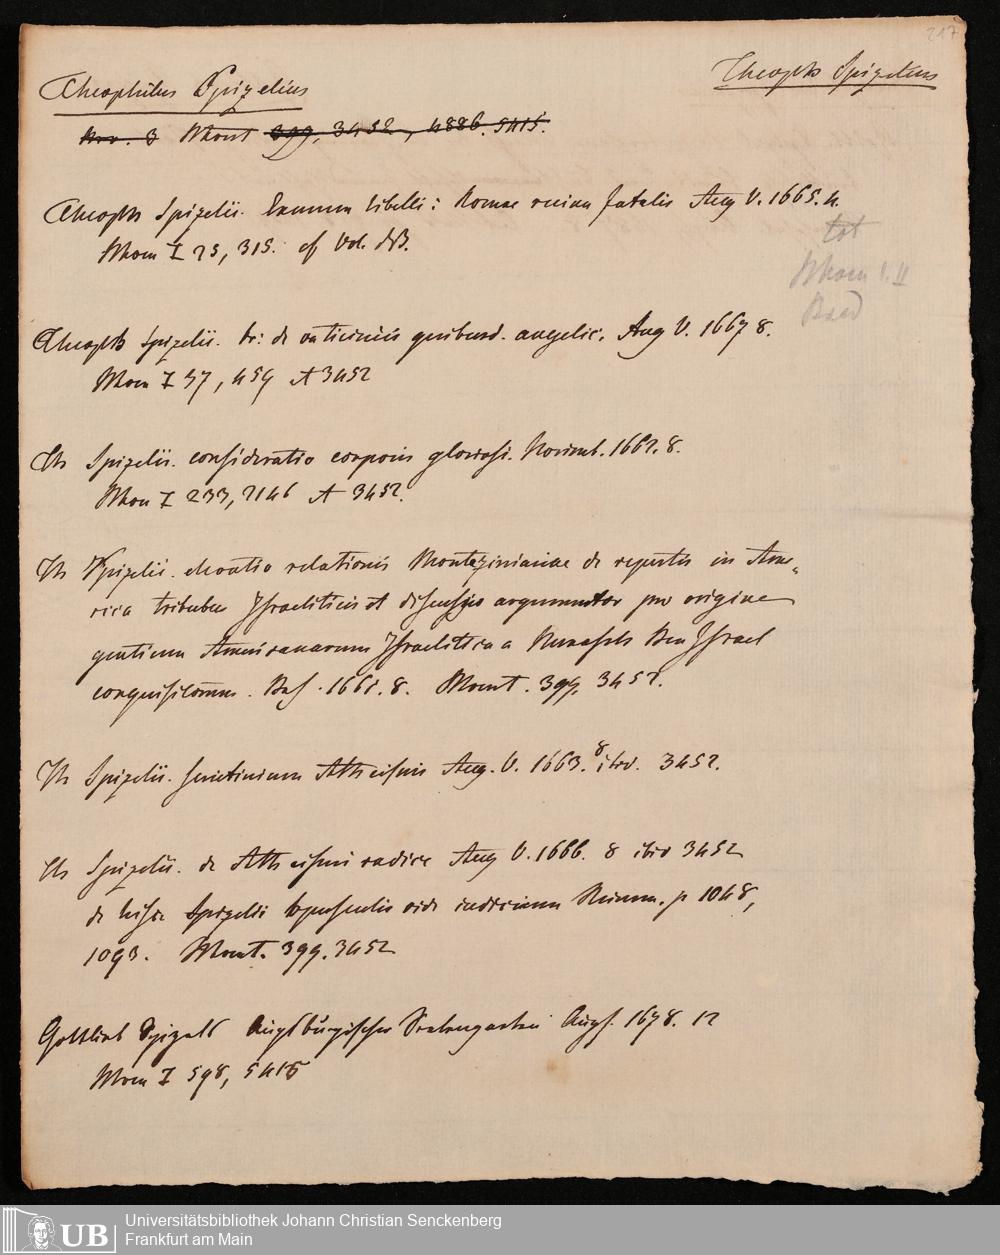 217
Theoph Spizelius
Theophilus Spizelius
Nov. 3 Mount 399, 3452, 4886. 5415.
Theoph Spizelii. Examen libelli: Romae ruina fatalis Aug V. 1665. 4.
Mon I 25, 315. cf Vol.
tot
I. II
Theoph Spizelii. de vaticiniis angelic. Aug V. 1667 8.
Mon I 37, 459 A 3452
Th Spizelii. consideratio corporis gloriosi. Norimb. 1662. 8.
Mon I 233, 2146 A 3452.
Th Spizelii. elevatio relationis Montezinianae de repertis in Ame-
rica tribubus Israeliticis et discussio argumentor pro origine
gentium Americanarum Israelitica a Menasseh Ben Israel
conquisitorum. Bas. 1661. 8. Mount. 399, 3452.
Th Spizelii. scrutinium Atheismi Aug. V. 1663. 8 ibid. 3452.
Th Spizelii. de Atheismi radice Aug V. 1666. 8 ibid 3452
de hisce Spizelii opusculis vide iudicium Reimm. p 1048,
1093. Mount. 399. 3452
Gottlieb Spizels Augsburgischer Augs. 1678. 12
Mon I 598, 5415
UB
Universitätsbibliothek Johann Christian Senckenberg
Frankfurt am Main